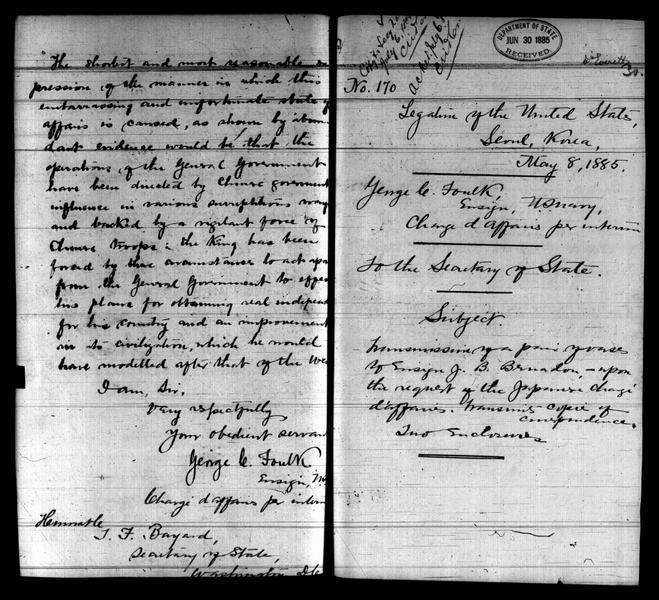 The shortest and most reasonable ex
pression of the manner in which this
embarrassing and unfortunate state of
affairs is caused, as shown by abun
dant evidence would be that the
operations of the General Government
have been directed by Chinese government
influence in various surreptitious ways
and backed by a vigilant force of
Chinese troops: the King has been
forced by these circumstances to act apart
from the General Government to effect
his plans for obtaining real independ
for his country and an improvement
in its civilization, which he would
have modelled after that of the We
I am, Sir,
Very respectfully
Your obedient servan
George C. Foulk
Ensign,
Chargé d'affaires per interim
Honorable
T. F. Bayard,
Secretary of State,
Washington D.C.
DEPARTMENT OF STATE
JUN 30 1885
RECEIVED
No. 170
Legation of the United States,
Seoul, Korea,
May 8, 1885.
George C. Foulk
Ensign, U.S. Navy,
Chargé d'affaires per interim
To the Secretary of State.
Subject.
Transmission of a pair of vases
to Ensign J. B. Bernadou, upon
the request of the Japanese Chargé
d'affaires. Transmits copies of
correspondence.
Two Enclosures